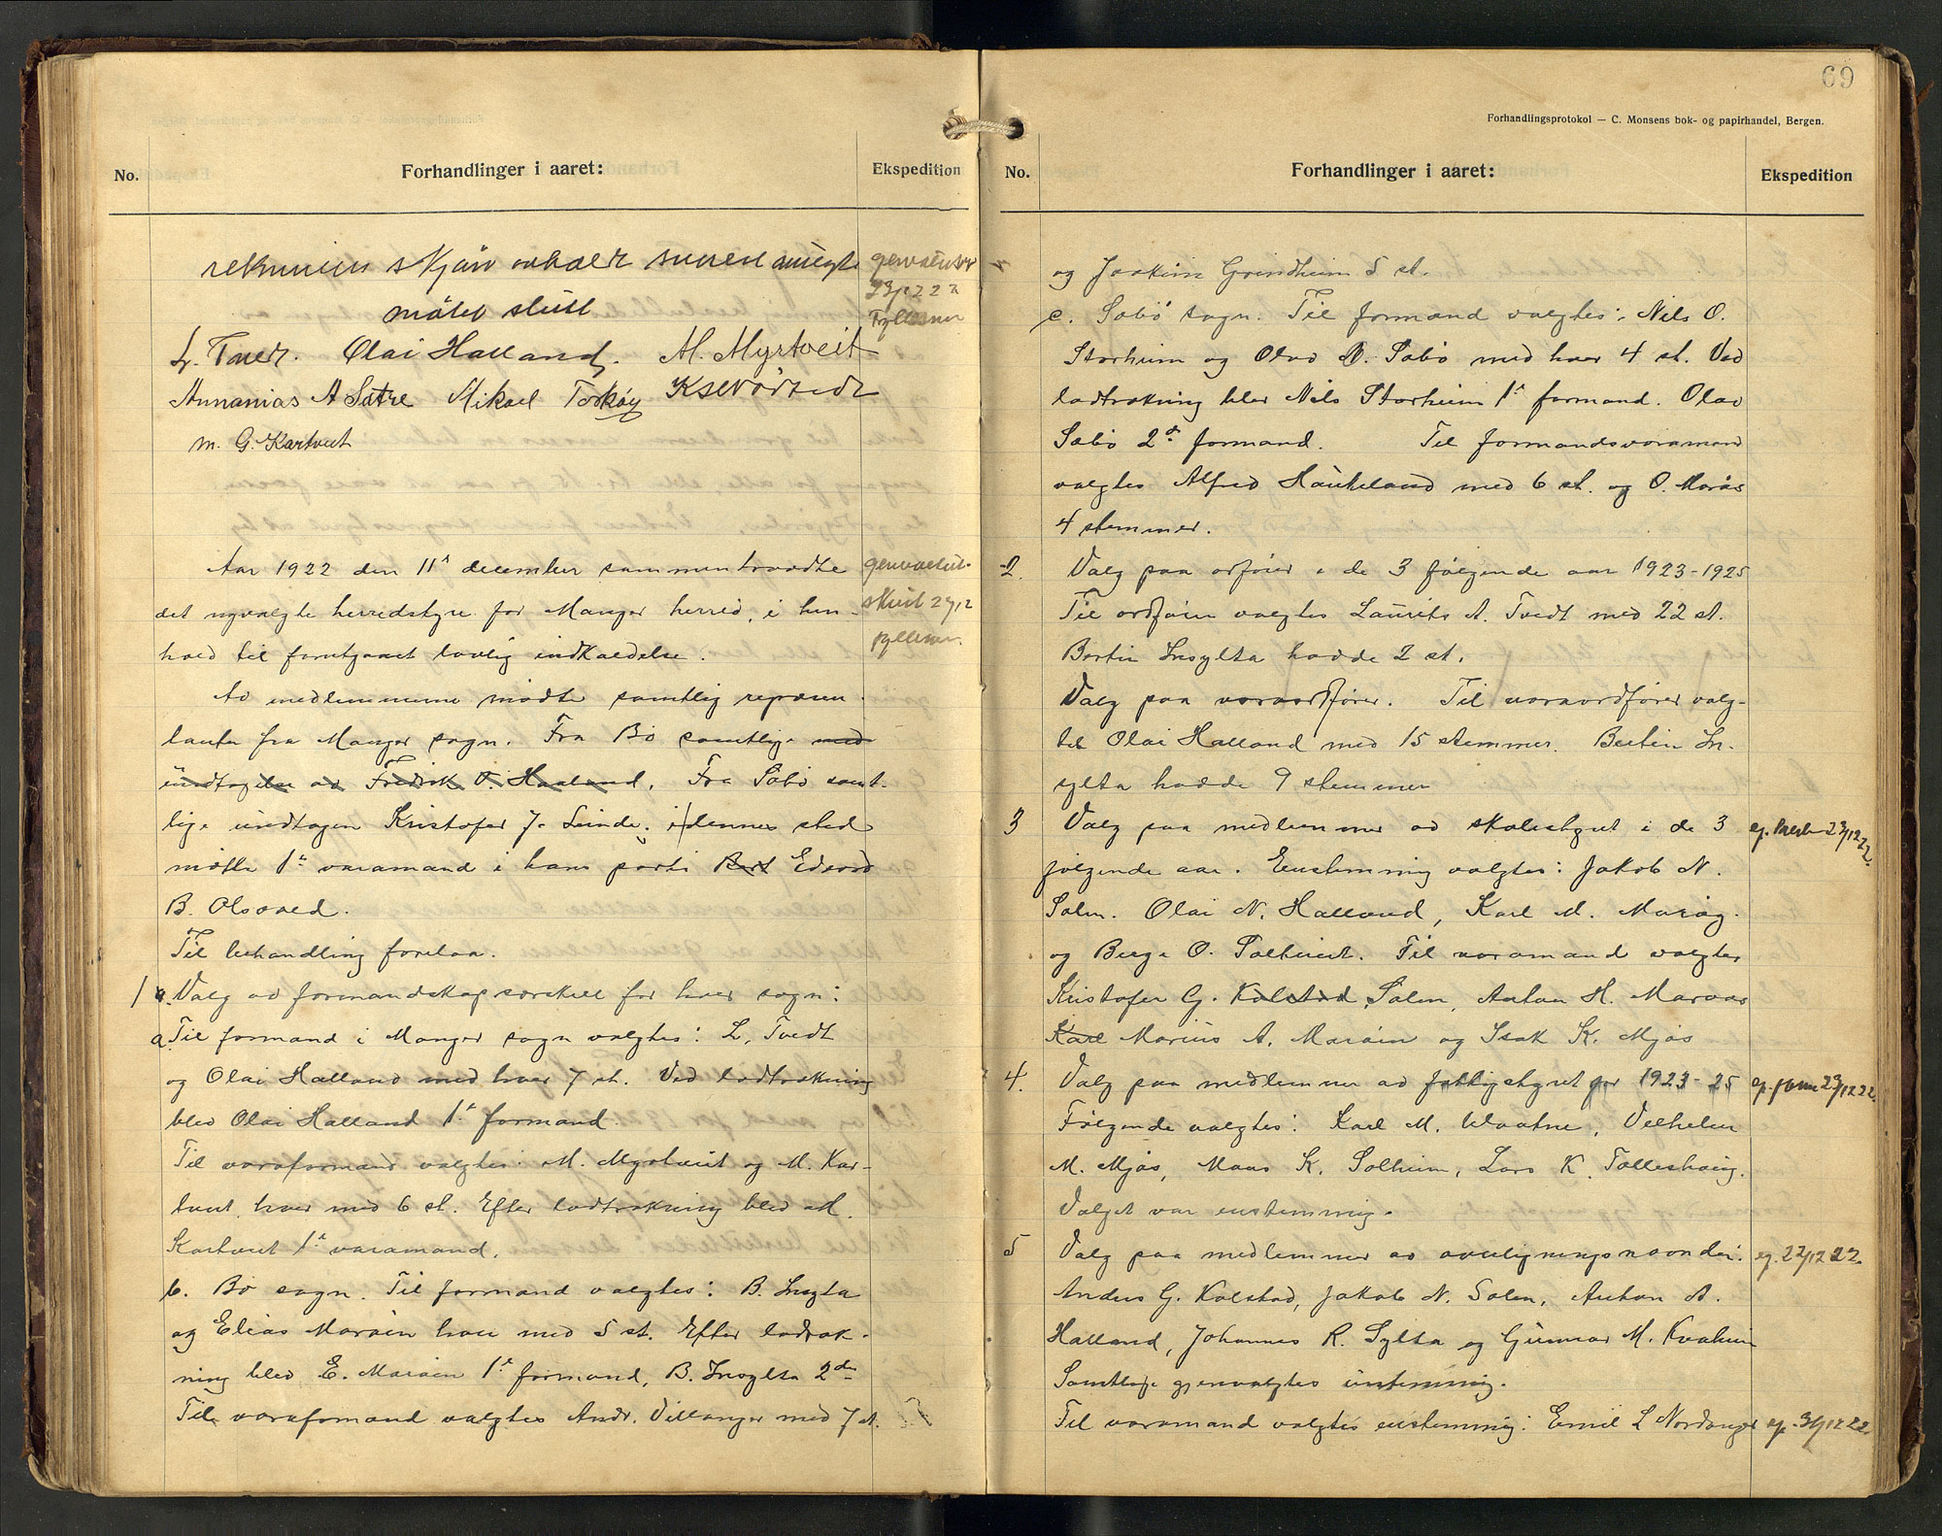 No.
Forhandlinger i aaret:
Ekspedition
møtet slutt
L. Tvedt. Olai Halland. M. Myrtveit
Annanias A Sætre Mikael Toskøy
M. G. Kartveit
Aar 1922 den 11te december sammentraadte
det nyvalgte herredstyre for Manger herred, i hen-
hold til foretgaaet lovlig indkaldelse.
Av medlemmene møtte samtlig repræsen-
tanter fra Manger sogn. Fra Bø samtlige med
undtagelse av Fredrik O. Haaland. Fra Sæbø samt-
lige undtagen Kristofer J. Leinde, i dennes sted
møtte 1ste varamand i hans parti Bert Edvard
B. Olsvold.
Til behandling forelaa.
1 Valg av formandskap særskilt for hver sogn:
a. Til formand i Manger sogn valgtes: L. Tvedt
og Olai Halland med hver 7 st. Ved lodtrækning
blev Olai Halland 1ste formand.
Til varaformand valgtes M. Myrtveit og M. Kar-
tveit hver med 6 st. Efter lodtrækning blev M.
Kartveit 1ste varamand.
b. Bø sogn. Til formand valgtes: B. Insylta
og Elias Marøen hver med 5 st. Efter lodræk-
ning blev E. Marøen 1ste formand, B. Insylta 2den
Til varaformand valgtes Andr. Villanger med 7 st.
69
Forhandlingsprotokol — C. Monsens bok- og papirhandel, Bergen.
No.
Forhandlinger i aaret:
Ekspedition
og Joakim Grindheim 5 st.
c. Sæbø sogn. Til formand valgtes: Nils O.
Storheim og Olav O. Sæbø med hver 4 st. Ved
lodtrækning blev Nils Storheim 1ste formand. Olav
Sæbø 2den formand. Til formandsvaramænd
valgtes Alfred Haukeland med 6 st. og O. Marås
4 stemmer.
2. Valg paa ordfører i de 3 følgende aar 1923-1925
Til ordfører valgtes Laurits A. Tvedt med 22 st.
Bertin Insylta hadde 2 st.
Valg paa varaordfører. Til varaordfører valg-
tes Olai Halland med 15 stemmer. Bertin In-
sylta hadde 9 stemmer
3 Valg paa medlemmer av skolestyret i de 3
følgende aar. Enstemmig valgtes: Jakob N.
Solem. Olai N. Halland, Karl M. Marøy.
og Berge O. Toltveit. Til varamænd valgtes
Kristofer G. Kolstad, Solem, Anton H. Maraas
Karl Marius A. Marøen og Isak K. Mjøs
4. Valg paa medlemmer av fattigstyret for 1923-25
Følgende valgtes: Karl M. Vaatne, Vilhelm
M. Mjøs, Mons K. Solheim, Lars K. Tolleshaug.
Valget var enstemmig.
5 Valg paa medlemmer av overligningsnævnden: ep. 22/12 22.
Anders G. Kolstad, Jakob N. Solem, Anton A.
Halland, Johannes R. Sylta og Gunnar M. Kvalheim
Samtlige gjenvalgtes enstemmig.
Til varamænd valgtes enstemmig: Emil L Nordanger ep. 30/12 22